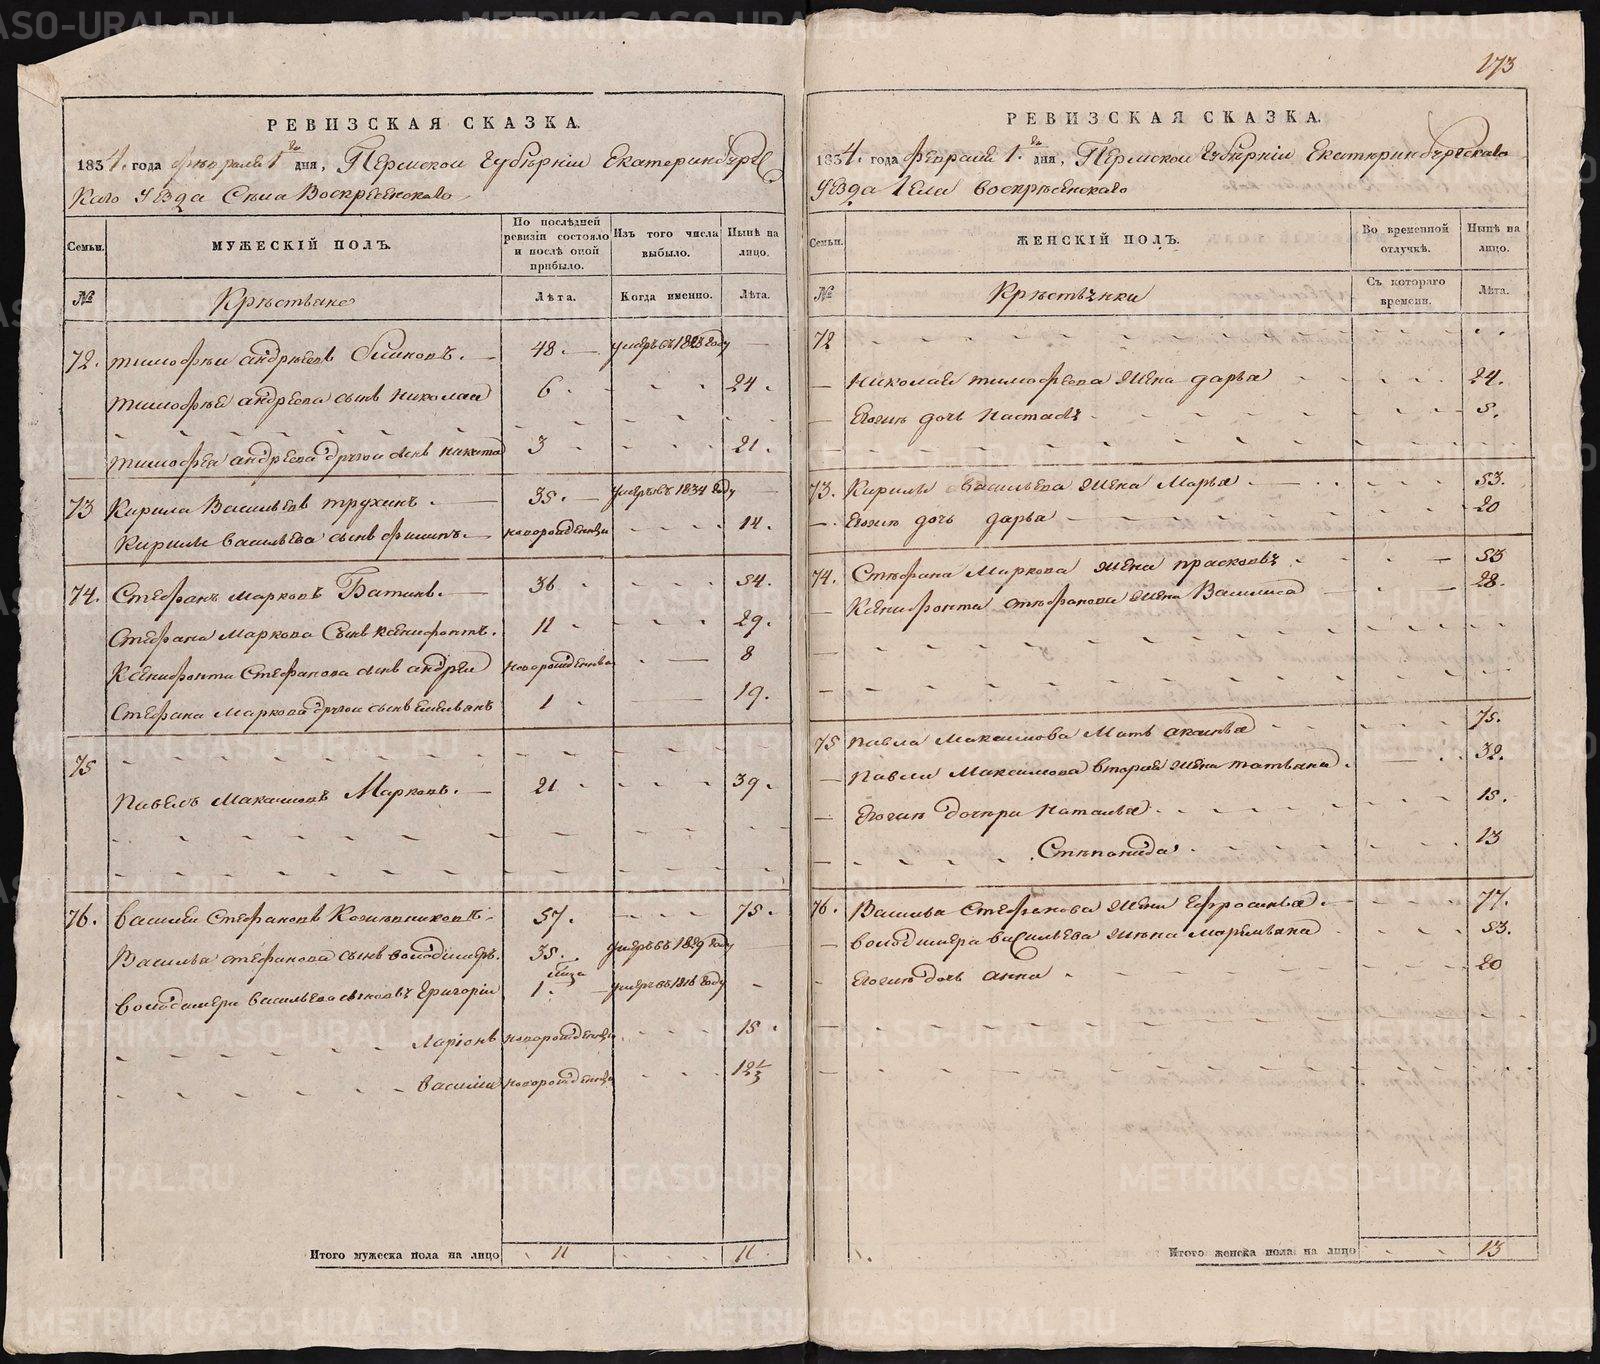 173
РЕВИЗСКАЯ СКАЗКА.
1834. года февраля 1го дня, Пермской Губернiи Екатеринбургс
каго Уезда Села Воскресенскаго
Семьи. МУЖЕСКIЙ ПОЛЪ. По послѣдней ревизiи состояло и послѣ оной прибыло. Изъ того числа выбыло. Нынѣ на лицо.
№ Крестьяне Лѣта. Когда именно. Лѣта.
72. тимофеи андреевъ 48. умеръ въ 18 году
тимофея андреева сынъ николаи 6 24.
тимофея андреева другои сынъ никита 3 21.
73 Кирила Васильевъ трухинъ. 35. умеръ въ 1834 году
Кирилы васильева сынъ филипъ. новорожденны 14.
74. Стефанъ Марковъ Батинъ. 36 54.
Стефана Маркова Сынъ ксенофонтъ. 11 29.
Ксенофонта Стефанова сынъ андреи новорожденны 8
Стефана Маркова другои сынъ емельянъ 1 19.
75
Павелъ Максимовъ Марковъ. 21 39.
76. василеи Стефановъ Кожевниковъ 57. 75.
Василья стефанова сынъ володимеръ. 35. умеръ въ 1829 году
володимера васильева сыновья Григорiи 1. умеръ въ 1816 году
Ларiонъ новорожденны 15
василiи новорожденны 12½
Итого мужеска пола на лицо 11 11.
РЕВИЗСКАЯ СКАЗКА.
1834. года февраля 1го дня, Пермской Губернiи Екатеринбургскаго
Уезда Села воскресенскаго
Семьи. ЖЕНСКIЙ ПОЛЪ. Во временной отлучкѣ. Нынѣ на лицо.
№ Крестьянки Съ котораго времени. Лѣта.
72
Николая тимофеева жена дарья 24.
Егожъ дочь Настасья 5.
73. Кирилы васильева жена Марья 53.
Егожъ дочь дарья 20
74. Стефана Маркова жена прасковья 53
Ксенофонта стефанова жена Василиса 28.
75 Павла Максимова Мать 75.
Павла Максимова вторая жена татьяна. 32.
Егожъ дочери Наталья 15.
Степанида 13
76. Василья Стефанова жена Ефросинья. 77.
володимера васильева жена Маремьяна 53.
Егожъ дочь анна 20
Итого женска пола на лицо 13
METRIKI.GASO-URAL.RU